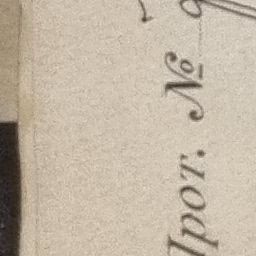 Прот. №